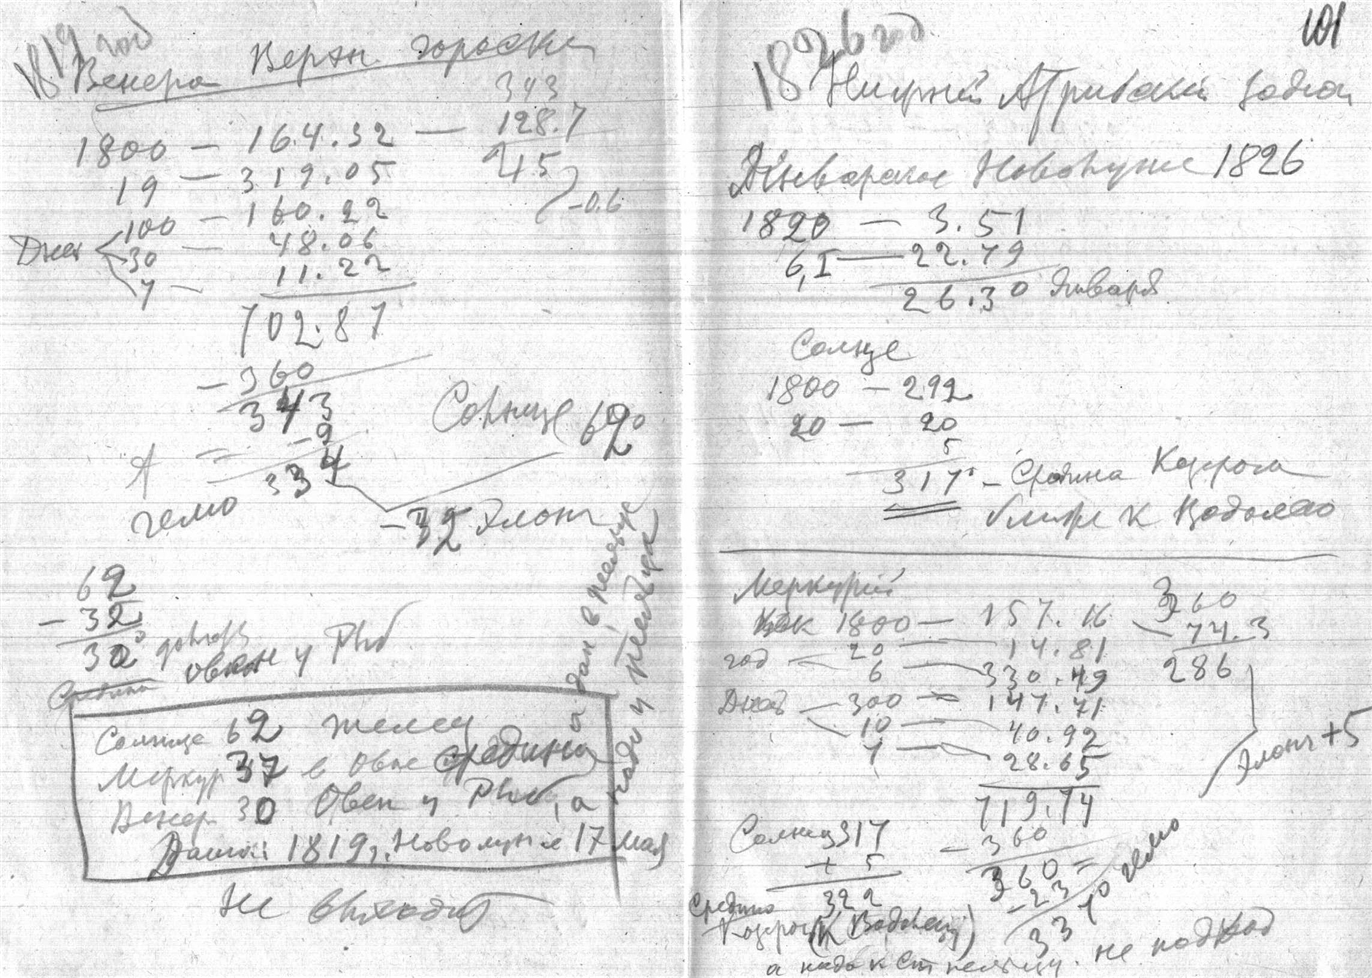 1819 год
Венера Верхн гороска
343
1800 — 164.32 — 128.7
19 — 319.05
45
100 — 160.22
-0.6
Дней
30 — 48.06
7 — 11.22
702.87
- 360
343
- 9
334
А
гелио
Солнце 62°
- 32 Элонг
62
- 32
30°
Овен у Рыб
Солнце 62 Телец
Меркур 37 в Овне средина
Венер 30 Овен у Рыб, а
надо у Тельца
Дата: 1819, Новолуние 17 мая
Не выходит
101
1826 год
Нижний Атрибский Зодиак
Январское Новолуние 1826
1820 — 3.51
6, I — 22.79
26.30 Января
Солнце
1800 — 292
20 — 20
5
317° — Средина Козерога
ближе к Водолею
Меркурий
1800 — 157.16
год
20 — 14.81
6 — 330.49
Дней — 300 — 147.71
10 — 40.92
7 — 28.65
719.74
- 360
360
- 23
337° гелио
360
- 74.3
286
Элонг +5
Солнц 317
+ 5
322
Средина
Козерог (к Водолею)
а надо к
не подход